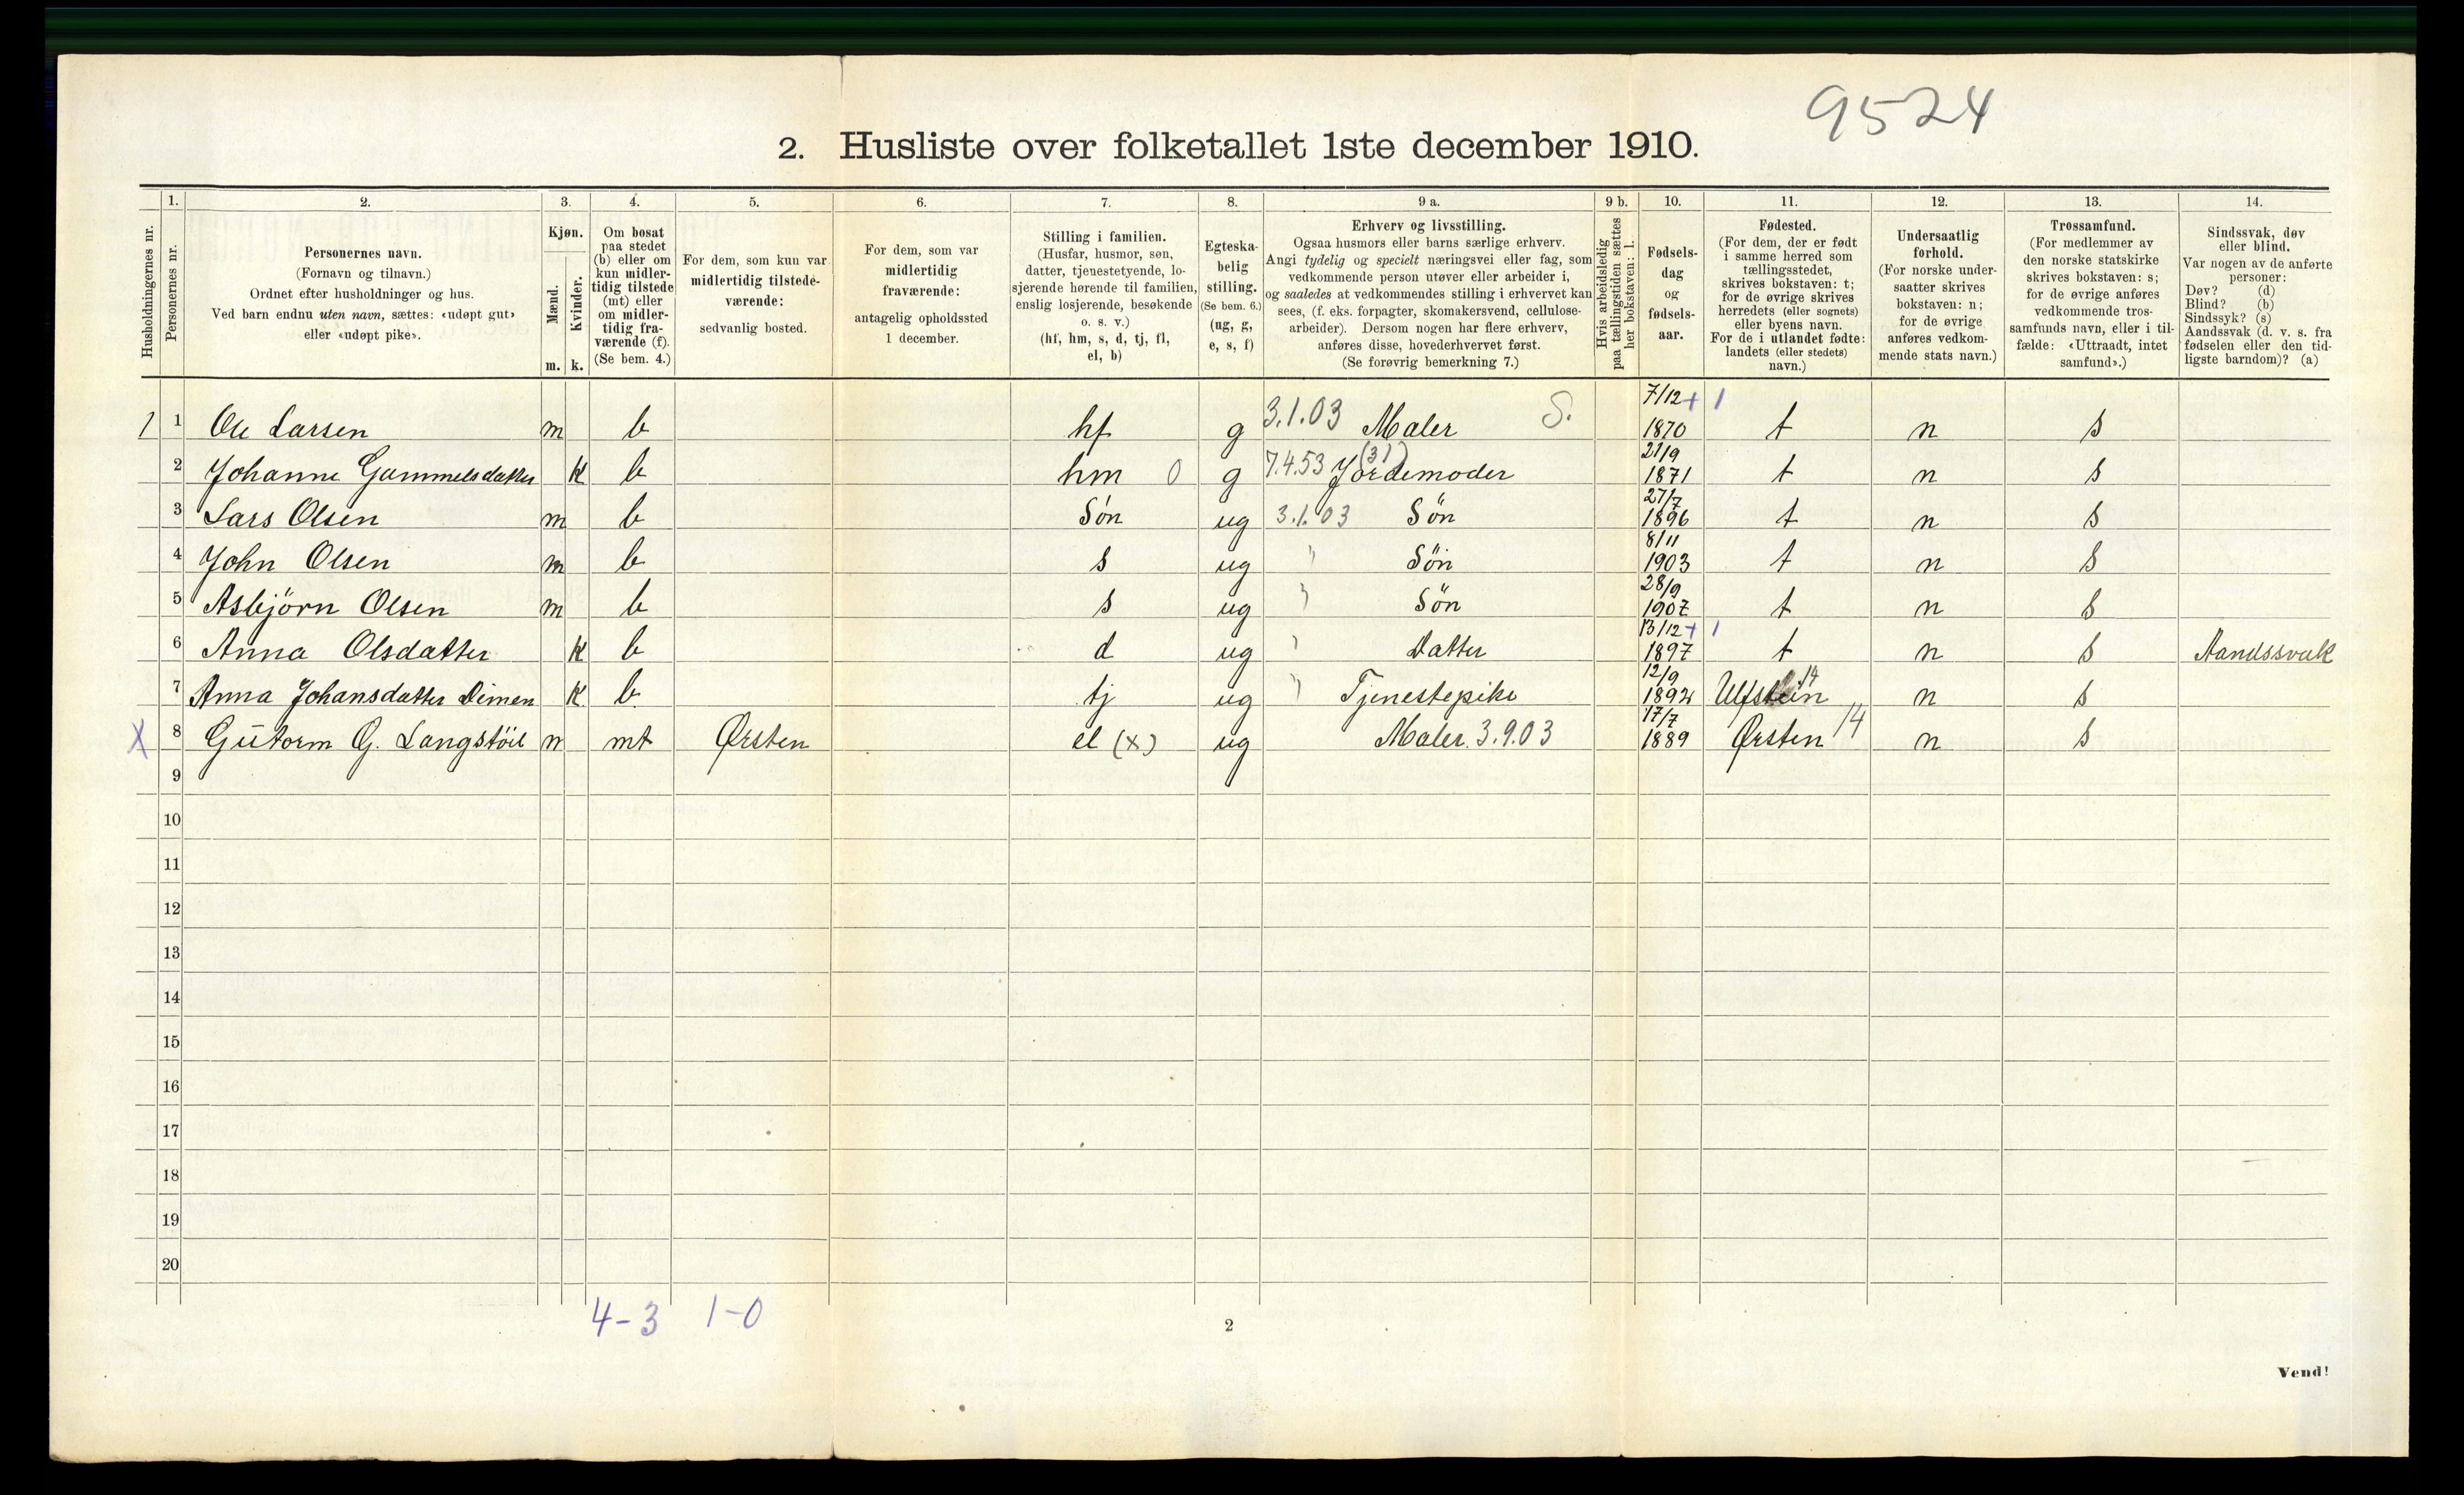 9524
2. Husliste over folketallet 1ste december 1910.
Husholdningernes nr.
1.
Personernes nr.
2.
Personernes navn.
(Fornavn og tilnavn.)
Ordnet efter husholdninger og hus.
Ved barn endnu uten navn, sættes: «udøpt gut»
eller «udøpt pike».
3.
Kjøn.
Mænd.
Kvinder.
m. k.
4.
Om bosat
paa stedet
(b) eller om
kun midler-
tidig tilstede
(mt) eller
om midler-
tidig fra-
værende (f).
(Se bem. 4.)
5.
For dem, som kun var
midlertidig tilstede-
værende:
sedvanlig bosted.
6.
For dem, som var
midlertidig
fraværende:
antagelig opholdssted
1 december.
7.
Stilling i familien.
(Husfar, husmor, søn,
datter, tjenestetyende, lo-
sjerende hørende til familien,
enslig losjerende, besøkende
o. s. v.)
(hf, hm, s, d, tj, fl,
el, b)
8.
Egteska-
belig
stilling.
(Se bem. 6.)
(ug, g,
e, s, f)
9 a.
Erhverv og livsstilling.
Ogsaa husmors eller barns særlige erhverv.
Angi tydelig og specielt næringsvei eller fag, som
vedkommende person utøver eller arbeider i,
og saaledes at vedkommendes stilling i erhvervet kan
sees, (f. eks. forpagter, skomakersvend, cellulose-
arbeider). Dersom nogen har flere erhverv,
anføres disse, hovederhvervet først.
(Se forøvrig bemerkning 7.)
9 b.
Hvis arbeidsledig
paa tællingstiden sættes
her bokstaven: l.
10.
Fødsels-
dag
og
fødsels-
aar.
11.
Fødested.
(For dem, der er født
i samme herred som
tællingsstedet,
skrives bokstaven: t;
for de øvrige skrives
herredets (eller sognets)
eller byens navn.
For de i utlandet fødte:
landets (eller stedets)
navn.)
12.
Undersaatlig
forhold.
(For norske under-
saatter skrives
bokstaven: n;
for de øvrige
anføres vedkom-
mende stats navn.)
13.
Trossamfund.
(For medlemmer av
den norske statskirke
skrives bokstaven: s;
for de øvrige anføres
vedkommende tros-
samfunds navn, eller i til-
fælde: «Uttraadt, intet
samfund».)
14.
Sindssvak, døv
eller blind.
Var nogen av de anførte
personer:
Døv? (d)
Blind? (b)
Sindssyk? (s)
Aandssvak (d. v. s. fra
fødselen eller den tid-
ligste barndom)? (a)
1 1 Ole Larsen m b hf g 3.1.03 Maler S. 7/12 + 1 1870 t n s
2 Johanne Gammelsdatter k b hm 0 g 7.4.53 (31) Jordemoder 21/9 1871 t n s
3 Lars Olsen m b Søn ug 3.1.03 Søn 27/7 1896 t n s
4 John Olsen m b s ug " Søn 8/11 1903 t n s
5 Asbjörn Olsen m b s ug " Søn 28/9 1907 t n s
6 Anna Olsdatter k b d ug " Datter 13/12 + 1 1897 t n s Aandssvak
7 Anna Johansdatter Dimen k b tj ug " Tjenestepike 12/9 1892 Ulfstein 14 n s
X 8 Gutorm G. Langstöil m mt Ørsten el (x) ug Maler 3.9.03 17/7 1889 Ørsten 14 n s
9
10
11
12
13
14
15
16
17
18
19
20
4-3 1-0
2
Vend!